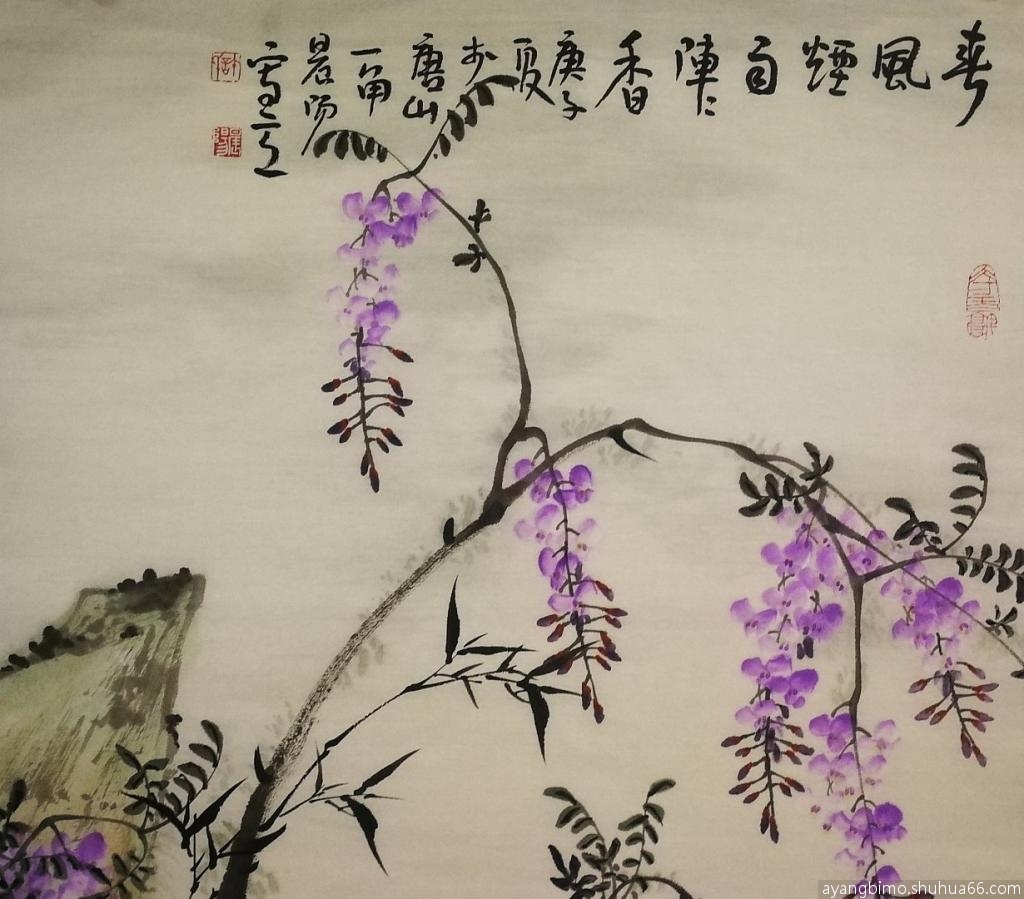 春風煙雨陣々香
庚子夏於唐山一角晨陽
ayangbimo.shuhua66.com